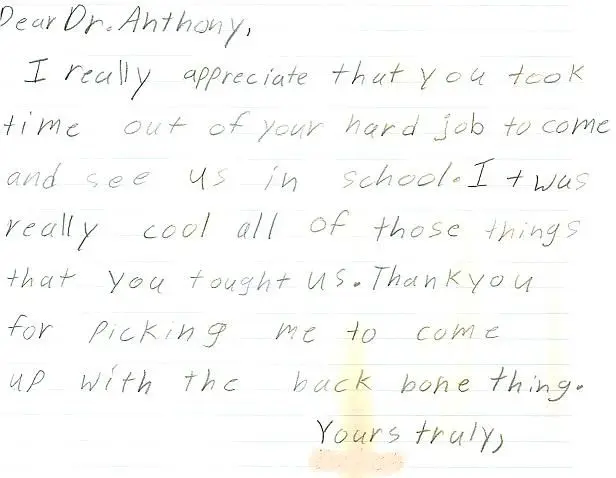 Dear Dr. Anthony,
I really appreciate that you took
time out of your hard job to come
and see us in school. It was
really cool all of those things
that you tought us. Thankyou
for picking me to come
up with the back bone thing.
Yours truly,